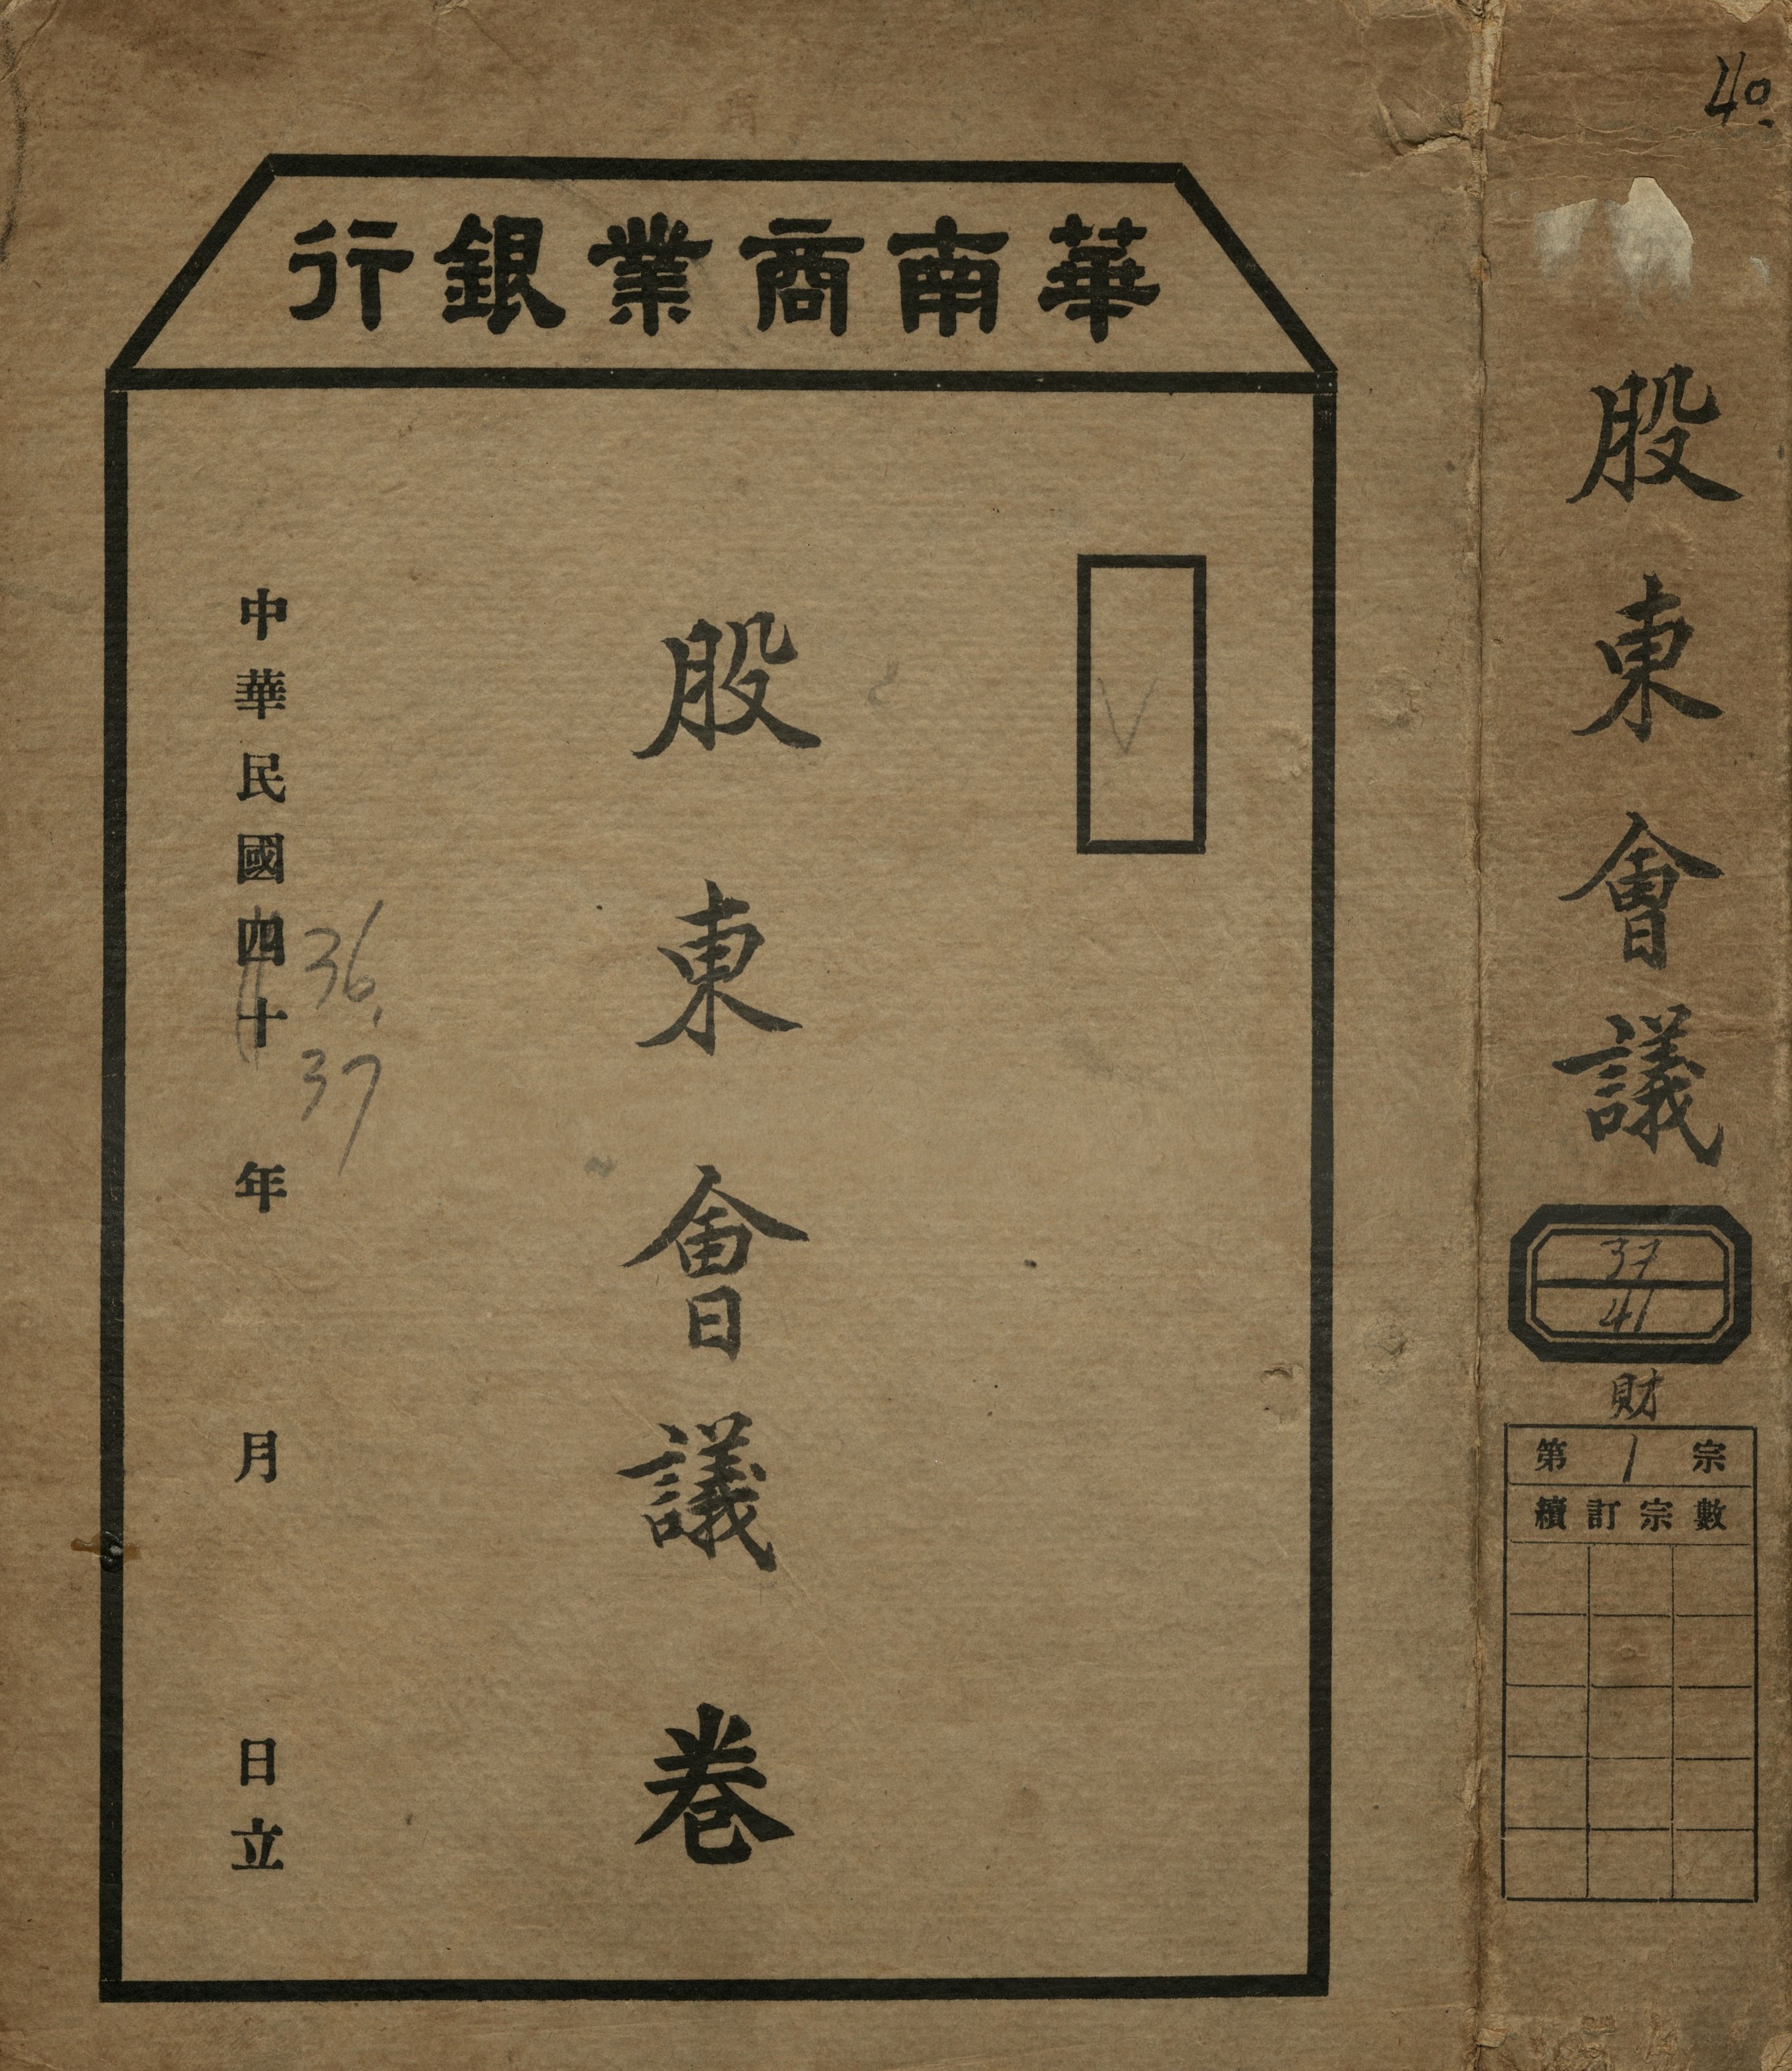 華南商業銀行
股東會議卷
中華民國四十年月日立
36.
37
40
股東會議
37
41
財
第1宗
續訂宗數